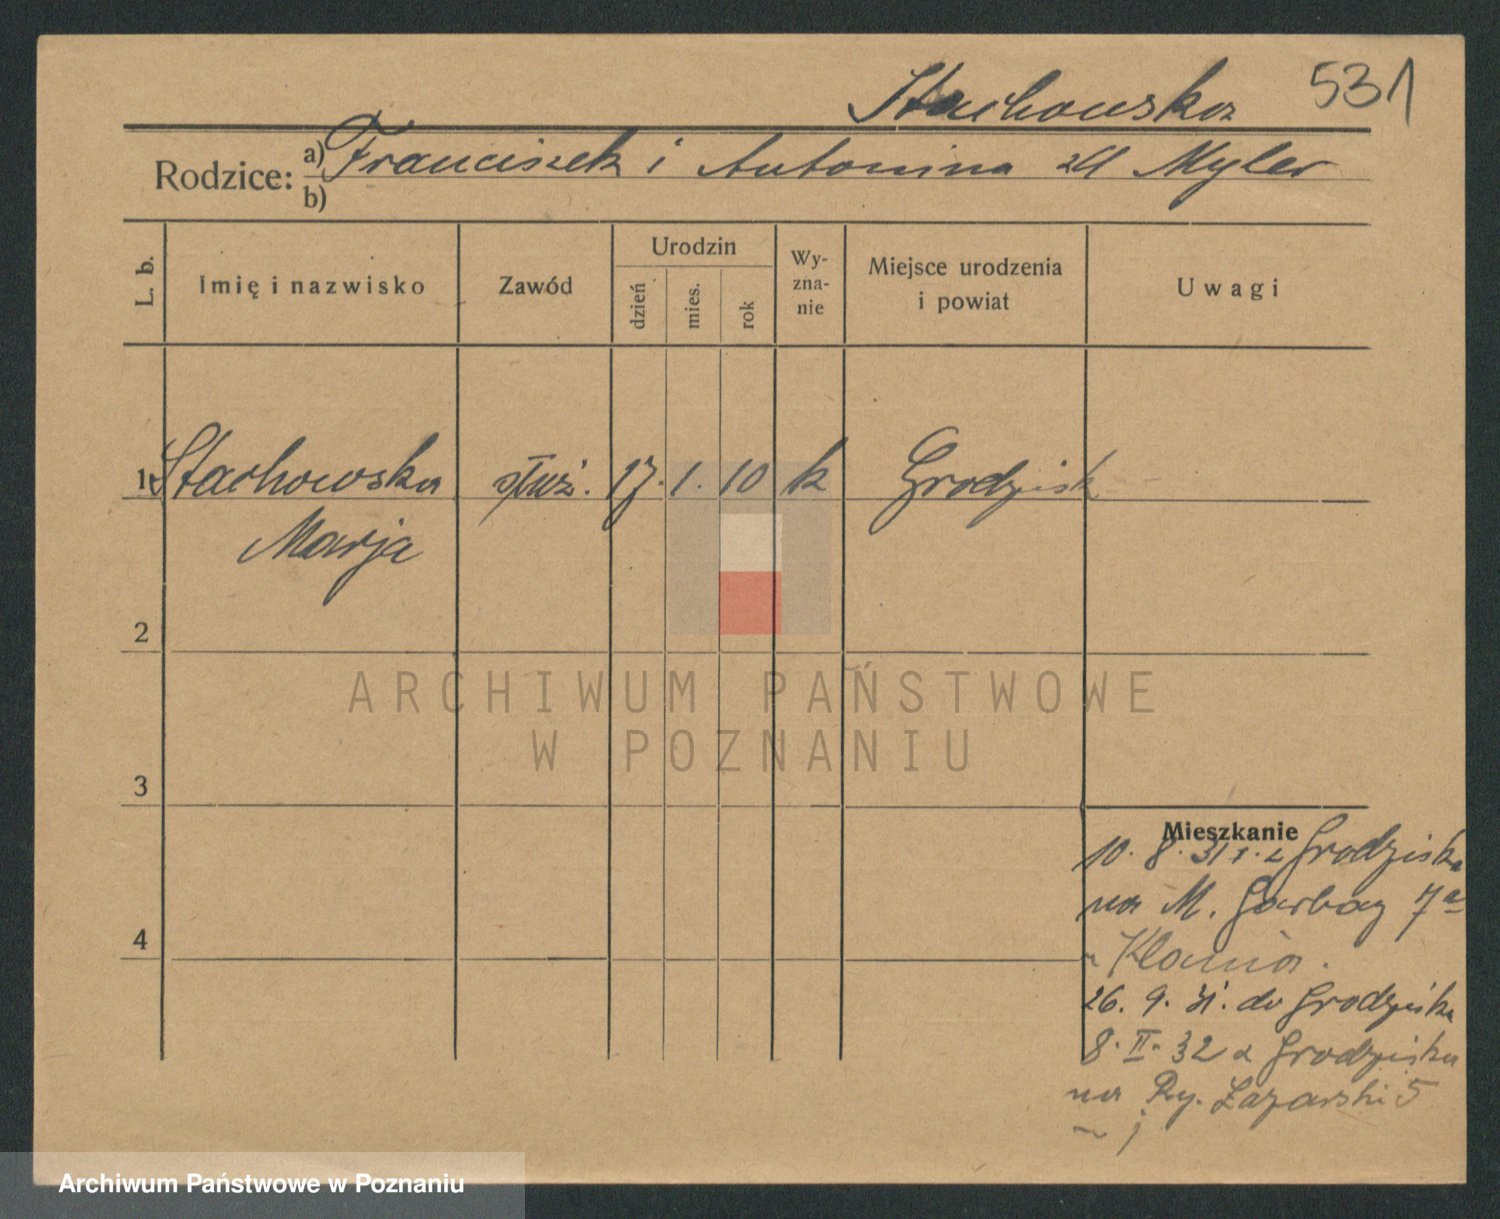 Stachowska 531
Rodzice: a) Franciszek i Antonina zd Myler
b)
L. b.
Imię i nazwisko
Zawód
Urodzin
dzień
mies.
rok
Wy-
zna-
nie
Miejsce urodzenia
i powiat
Uwagi
1 Stachowska służ. 17. 1. 10 k Grodzisk
Marja
2
ARCHIWUM PAŃSTWOWE
W POZNANIU
3
Mieszkanie
10. 8. 31 r. z Grodziska
na M. Garbay 7a
Klania.
26. 9. 31. do Grodziska
8. II. 32 z Grodziska
na Ry. Łazarski 5
4
Archiwum Państwowe w Poznaniu